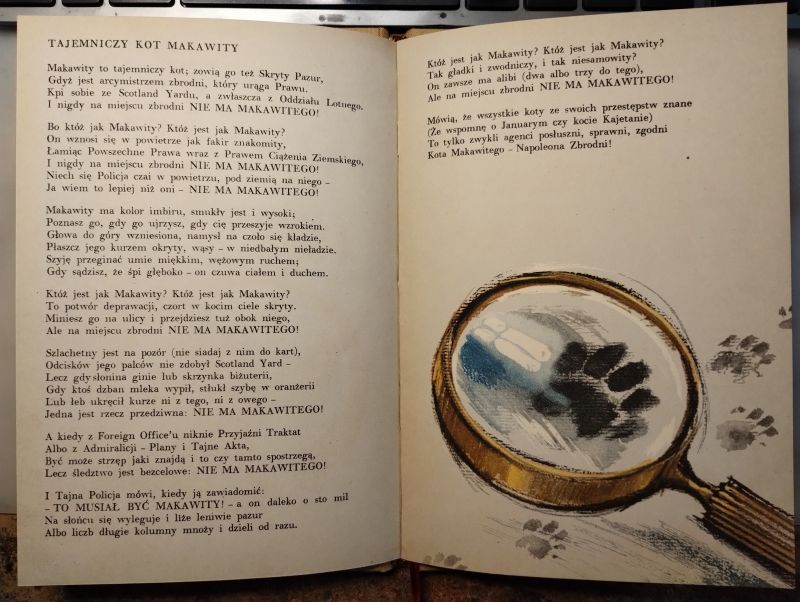 TAJEMNICZY KOT MAKAWITY
Makawity to tajemniczy kot; zowią go też Skryty Pazur,
Gdyż jest arcymistrzem zbrodni, który urąga Prawu.
Kpi sobie ze Scotland Yardu, a zwłaszcza z Oddziału Lotnego.
I nigdy na miejscu zbrodni NIE MA MAKAWITEGO!
Bo któż jak Makawity? Któż jest jak Makawity?
On wznosi się w powietrze jak fakir znakomity,
Łamiąc Powszechne Prawa wraz z Prawem Ciążenia Ziemskiego,
I nigdy na miejscu zbrodni NIE MA MAKAWITEGO!
Niech się Policja czai w powietrzu, pod ziemią na niego –
Ja wiem to lepiej niż oni – NIE MA MAKAWITEGO!
Makawity ma kolor imbiru, smukły jest i wysoki;
Poznasz go, gdy go ujrzysz, gdy cię przeszyje wzrokiem.
Głowa do góry wzniesiona, namysł na czoło się kładzie,
Płaszcz jego kurzem okryty, wąsy – w niedbałym nieładzie.
Szyję przeginać umie miękkim, wężowym ruchem;
Gdy sądzisz, że śpi głęboko – on czuwa ciałem i duchem.
Któż jest jak Makawity? Któż jest jak Makawity?
To potwór deprawacji, czort w kocim ciele skryty.
Miniesz go na ulicy i przejdziesz tuż obok niego,
Ale na miejscu zbrodni NIE MA MAKAWITEGO!
Szlachetny jest na pozór (nie siadaj z nim do kart),
Odcisków jego palców nie zdobył Scotland Yard –
Lecz gdy słonina ginie lub skrzynka biżuterii,
Gdy ktoś dzban mleka wypił, stłukł szybę w oranżerii
Lub łeb ukręcił kurze ni z tego, ni z owego –
Jedna jest rzecz przedziwna: NIE MA MAKAWITEGO!
A kiedy z Foreign Office'u niknie Przyjaźni Traktat
Albo z Admiralicji – Plany i Tajne Akta,
Być może strzęp jaki znajdą i to czy tamto spostrzegą,
Lecz śledztwo jest bezcelowe: NIE MA MAKAWITEGO!
I Tajna Policja mówi, kiedy ją zawiadomić:
– TO MUSIAŁ BYĆ MAKAWITY! – a on daleko o sto mil
Na słońcu się wyleguje i liże leniwie pazur
Albo liczb długie kolumny mnoży i dzieli od razu.
Któż jest jak Makawity? Któż jest jak Makawity?
Tak gładki i zwodniczy, i tak niesamowity?
On zawsze ma alibi (dwa albo trzy do tego),
Ale na miejscu zbrodni NIE MA MAKAWITEGO!
Mówią, że wszystkie koty ze swoich przestępstw znane
(Że wspomnę o Januarym czy kocie Kajetanie)
To tylko zwykli agenci posłuszni, sprawni, zgodni
Kota Makawitego – Napoleona Zbrodni!